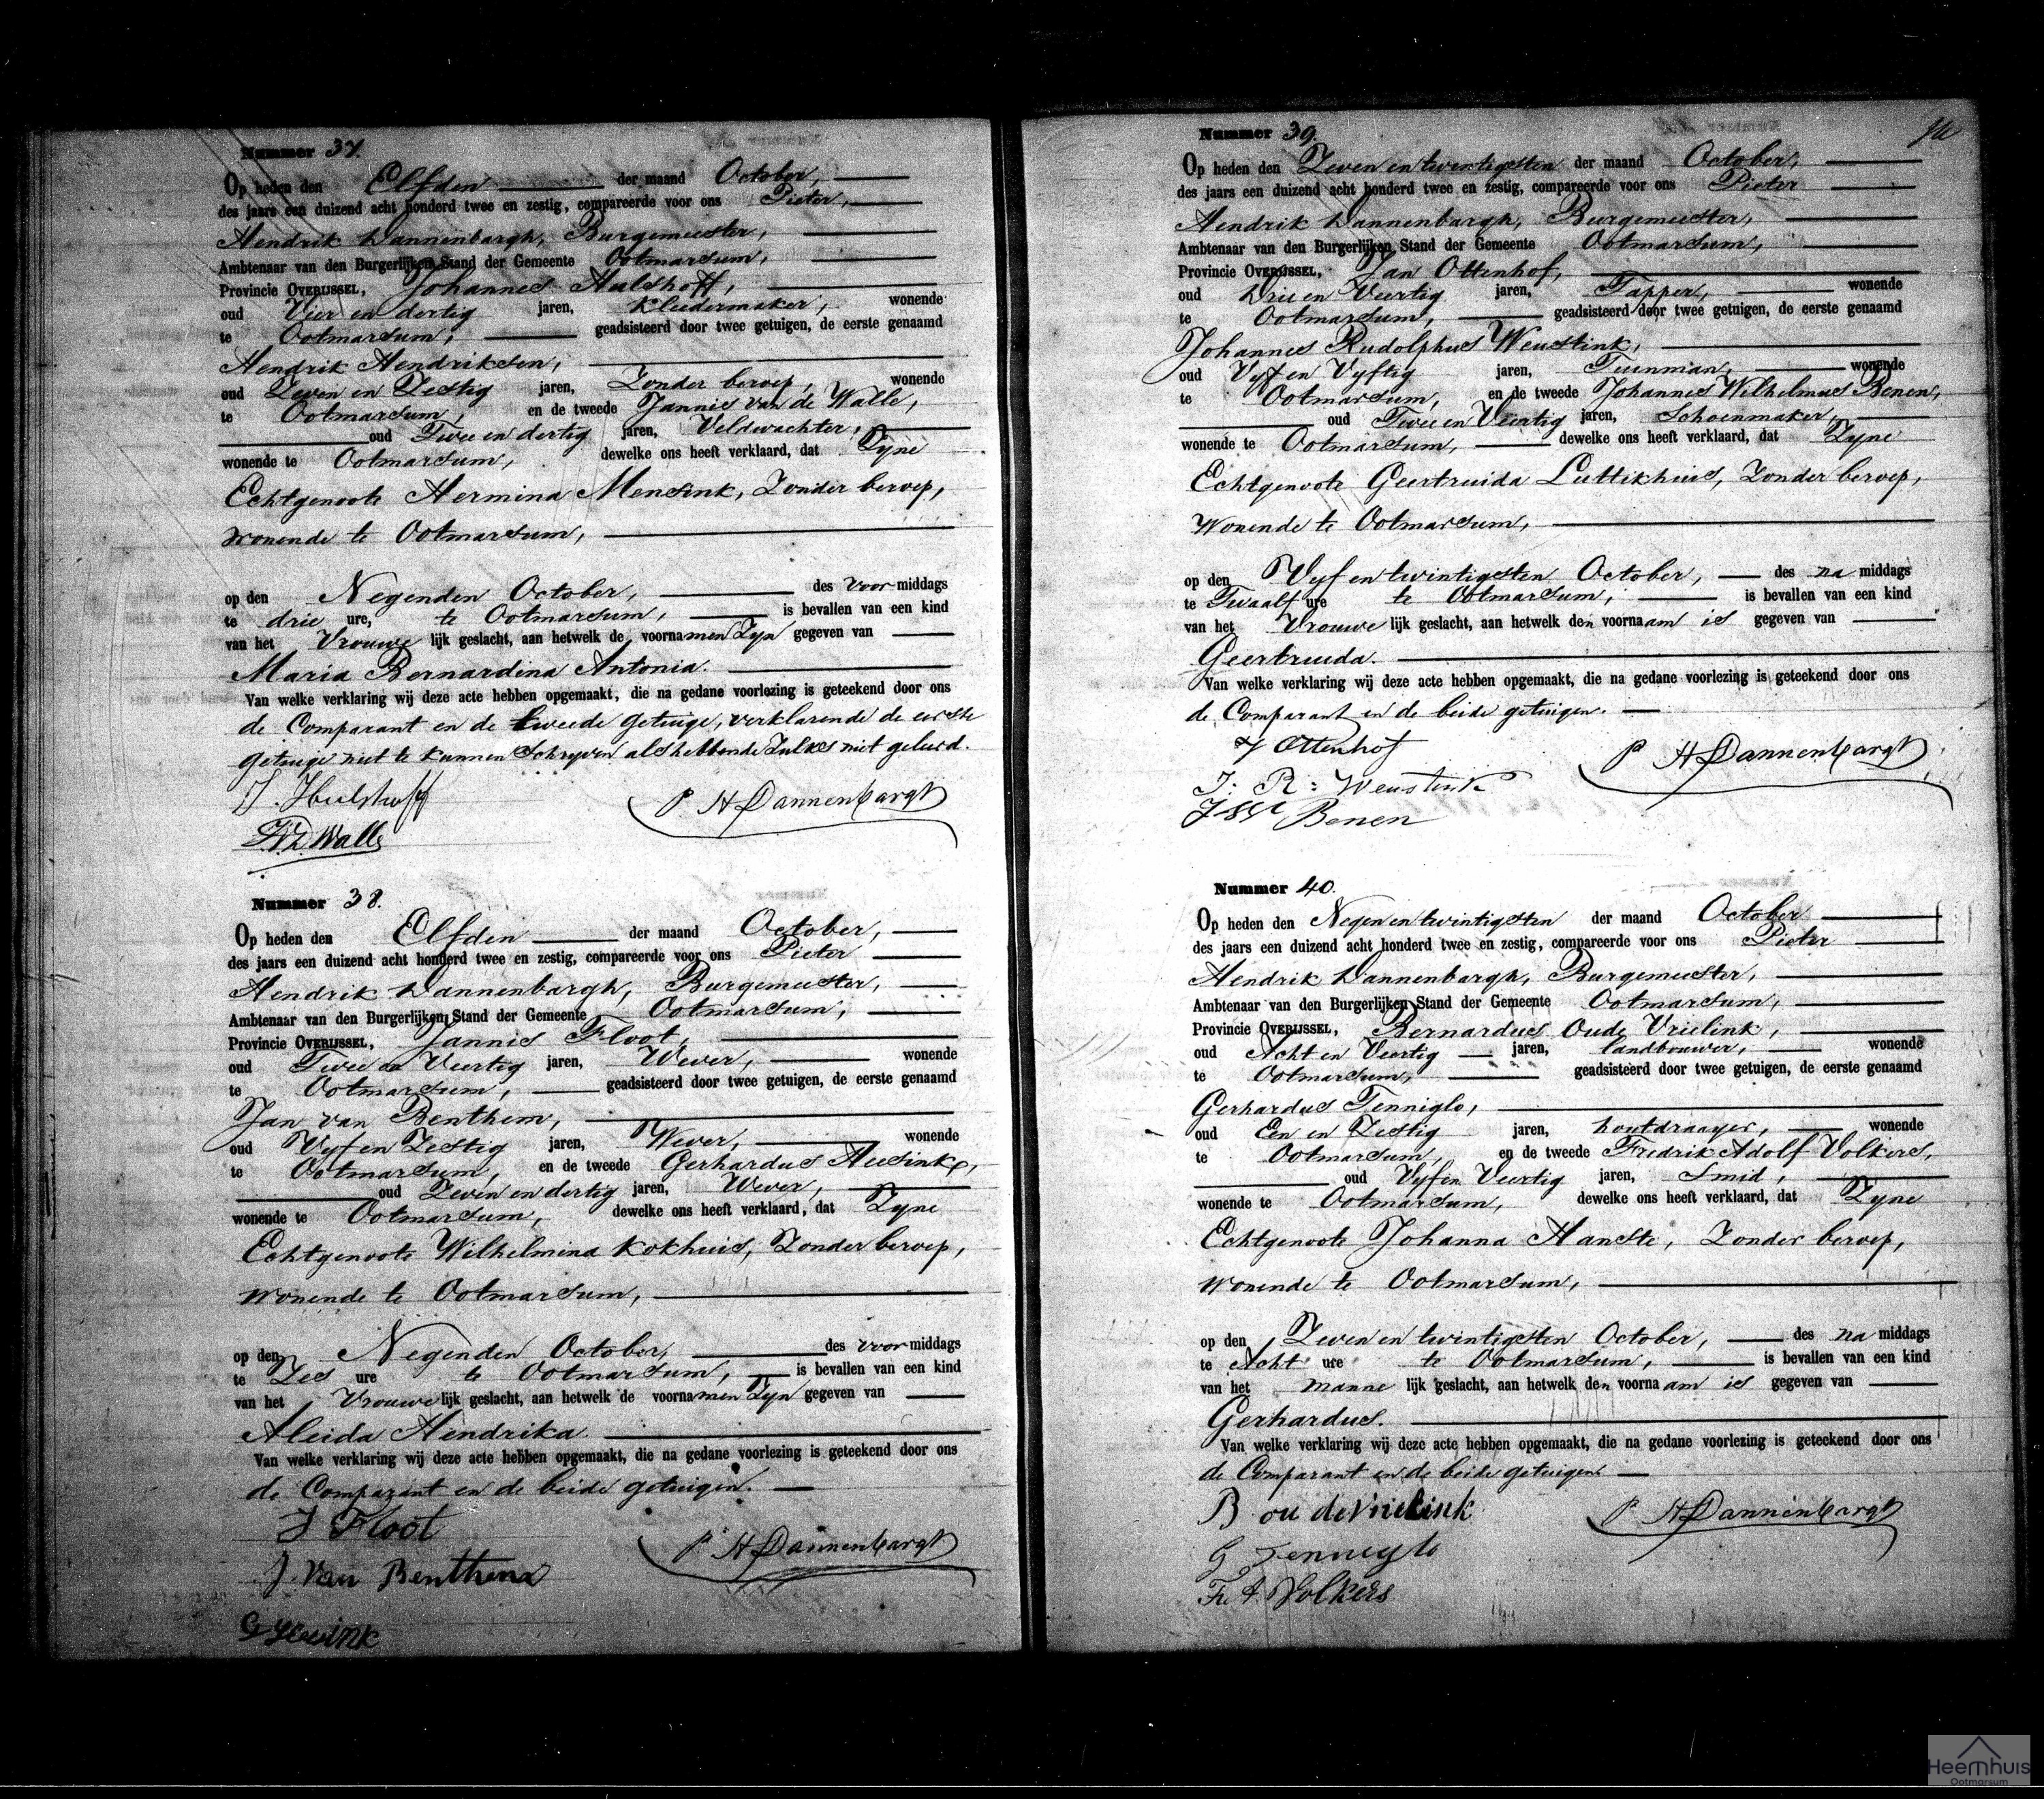 Nummer 37.
Op heden den Elfden der maand October,
des jaars een duizend acht honderd twee en zestig, compareerde voor ons Pieter,
Hendrik Dannenbargh, Burgemeester,
Ambtenaar van den Burgerlijken Stand der Gemeente Ootmarsum,
Provincie OVERIJSSEL, Johannes Hulshoff,
oud Vier en dertig jaren, Kleedermaker, wonende
te Ootmarsum, geadsisteerd door twee getuigen, de eerste genaamd
Hendrik Hendriksen,
oud Zeven en Zestig jaren, Zonder beroep, wonende
te Ootmarsum, en de tweede Jannis van de Walle,
oud Twee en dertig jaren, Veldwachter,
wonende te Ootmarsum, dewelke ons heeft verklaard, dat Zyne
Echtgenoote Hermina Mensink, Zonder beroep,
wonende te Ootmarsum,
op den Negenden October, des voor middags
te drie ure, te Ootmarsum, is bevallen van een kind
van het Vrouwe lijk geslacht, aan hetwelk de voornamen Zyn gegeven van
Maria Bernardina Antonia.
Van welke verklaring wij deze acte hebben opgemaakt, die na gedane voorlezing is geteekend door ons
de Comparant en de tweede getuige, verklarende de eerste
getuige niet te kunnen Schryven als hebbende Zulks niet geleerd.
J. Hulshoff
P H Dannenbargh
JVD Walle
Nummer 38.
Op heden den Elfden der maand October,
des jaars een duizend acht honderd twee en zestig, compareerde voor ons Pieter
Hendrik Dannenbargh, Burgemeester,
Ambtenaar van den Burgerlijken Stand der Gemeente Ootmarsum,
Provincie OVERIJSSEL, Jannis Floot,
oud Twee en Veertig jaren, Wever, wonende
te Ootmarsum, geadsisteerd door twee getuigen, de eerste genaamd
Jan van Benthem,
oud Vyf en Zestig jaren, Wever, wonende
te Ootmarsum, en de tweede Gerhardus Heesink,
oud Zeven en dertig jaren, Wever,
wonende te Ootmarsum, dewelke ons heeft verklaard, dat Zyne
Echtgenoote Wilhelmina Kokhuis, Zonder beroep,
wonende te Ootmarsum,
op den Negenden October, des voor middags
te Zes ure te Ootmarsum, is bevallen van een kind
van het Vrouwe lijk geslacht, aan hetwelk de voornamen Zyn gegeven van
Aleida Hendrika.
Van welke verklaring wij deze acte hebben opgemaakt, die na gedane voorlezing is geteekend door ons
de Comparant en de beide getuigen.
J Floot
P H Dannenbargh
J. Van Benthem
G Heesink
Nummer 39.
Op heden den Zeven en twintigsten der maand October,
des jaars een duizend acht honderd twee en zestig, compareerde voor ons Pieter
Hendrik Dannenbargh, Burgemeester,
Ambtenaar van den Burgerlijken Stand der Gemeente Ootmarsum,
Provincie OVERIJSSEL, Jan Ottenhof,
oud Drie en Veertig jaren, Tapper, wonende
te Ootmarsum, geadsisteerd door twee getuigen, de eerste genaamd
Johannes Rudolphus Weustink,
oud Vyf en Vyftig jaren, Tuinman, wonende
te Ootmarsum, en de tweede Johannes Wilhelmus Benen,
oud Twee en Veertig jaren, Schoenmaker,
wonende te Ootmarsum, dewelke ons heeft verklaard, dat Zyne
Echtgenoote Geertruida Luttikhuis, Zonder beroep,
Wonende te Ootmarsum,
op den Vyf en twintigsten October, des na middags
te Twaalf ure te Ootmarsum, is bevallen van een kind
van het Vrouwe lijk geslacht, aan hetwelk den voornaam is gegeven van
Geertruida.
Van welke verklaring wij deze acte hebben opgemaakt, die na gedane voorlezing is geteekend door ons
de Comparant en de beide getuigen.
J Ottenhof
P H Dannenbargh
J: R: Weustink
J W Benen
Nummer 40.
Op heden den Negen en twintigsten der maand October
des jaars een duizend acht honderd twee en zestig, compareerde voor ons Pieter
Hendrik Dannenbargh, Burgemeester,
Ambtenaar van den Burgerlijken Stand der Gemeente Ootmarsum,
Provincie OVERIJSSEL, Bernardus Oude Vrielink,
oud Acht en Veertig jaren, landbouwer, wonende
te Ootmarsum, geadsisteerd door twee getuigen, de eerste genaamd
Gerhardus Tenniglo,
oud Een en Zestig jaren, houtdraayer, wonende
te Ootmarsum, en de tweede Fredrik Adolf Volkers,
oud Vyf en Veertig jaren, Smid,
wonende te Ootmarsum, dewelke ons heeft verklaard, dat Zyne
Echtgenoote Johanna Hanste, Zonder beroep,
wonende te Ootmarsum,
op den Zeven en twintigsten October, des na middags
te Acht ure te Ootmarsum, is bevallen van een kind
van het manne lijk geslacht, aan hetwelk den voornaam is gegeven van
Gerhardus.
Van welke verklaring wij deze acte hebben opgemaakt, die na gedane voorlezing is geteekend door ons
de Comparant en de beide getuigen.
B oude Vrielink
P H Dannenbargh
G Tenniglo
Fr A Volkers
Heemhuis
Ootmarsum